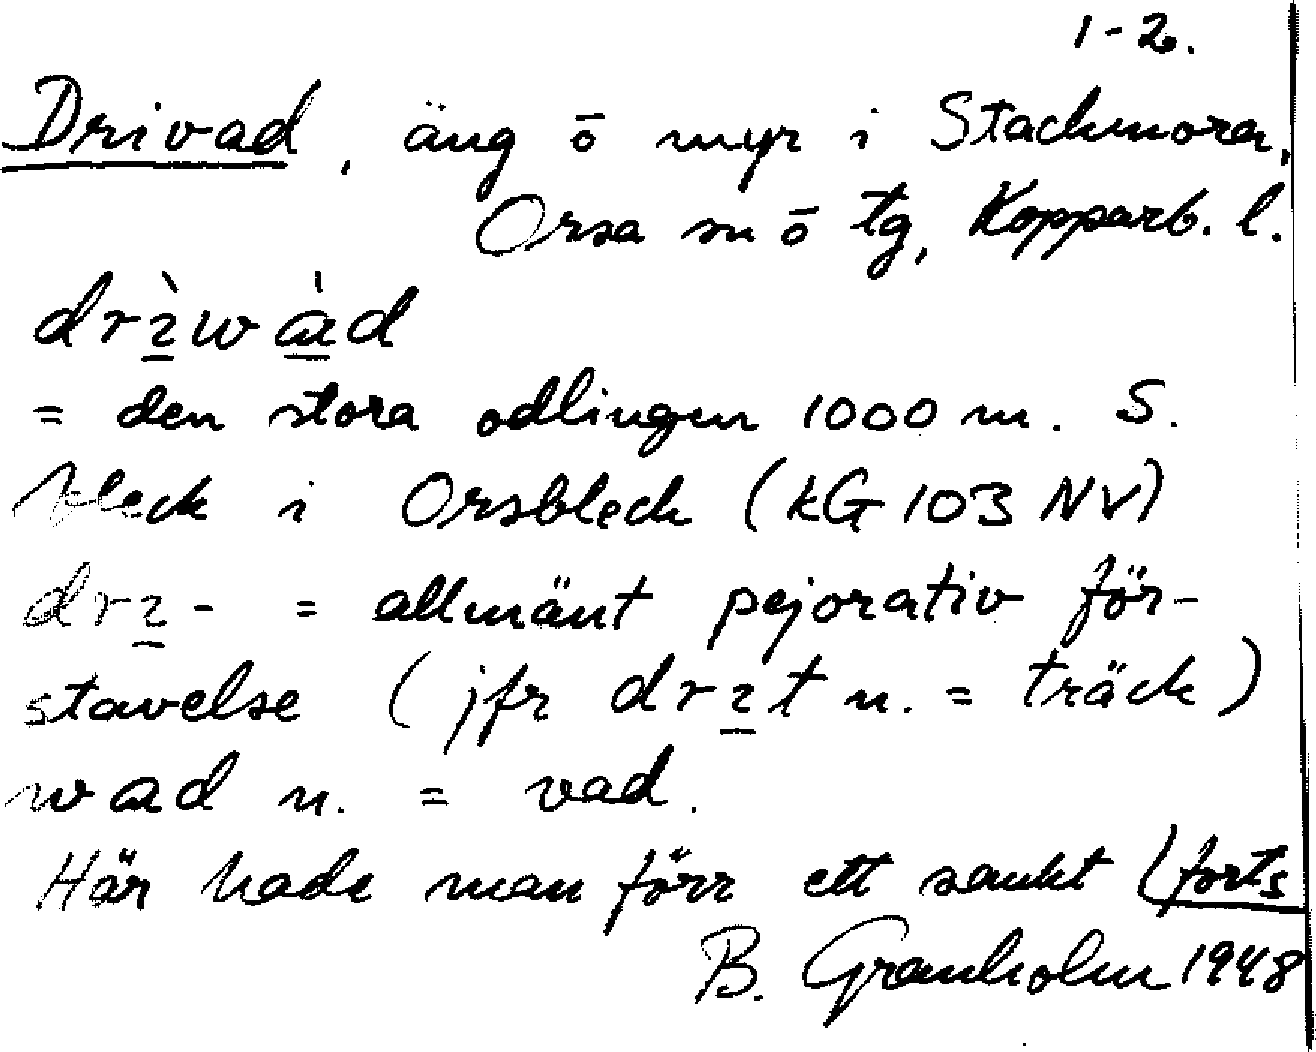 1-2.
Drivad, äng ō myr i Stackmora,
Orsa sn ō tg, Kopparb. l.
drɩ̀wàd
= den stora odlingen 1000 m. S.
bleck i Orsbleck (kG 103 NV)
drɩ- = allmänt pejorativ för-
stavelse (jfr drɩt n. = träck)
wad n. = vad.
Här hade man förr ett sankt (forts
B. Granholm 1948